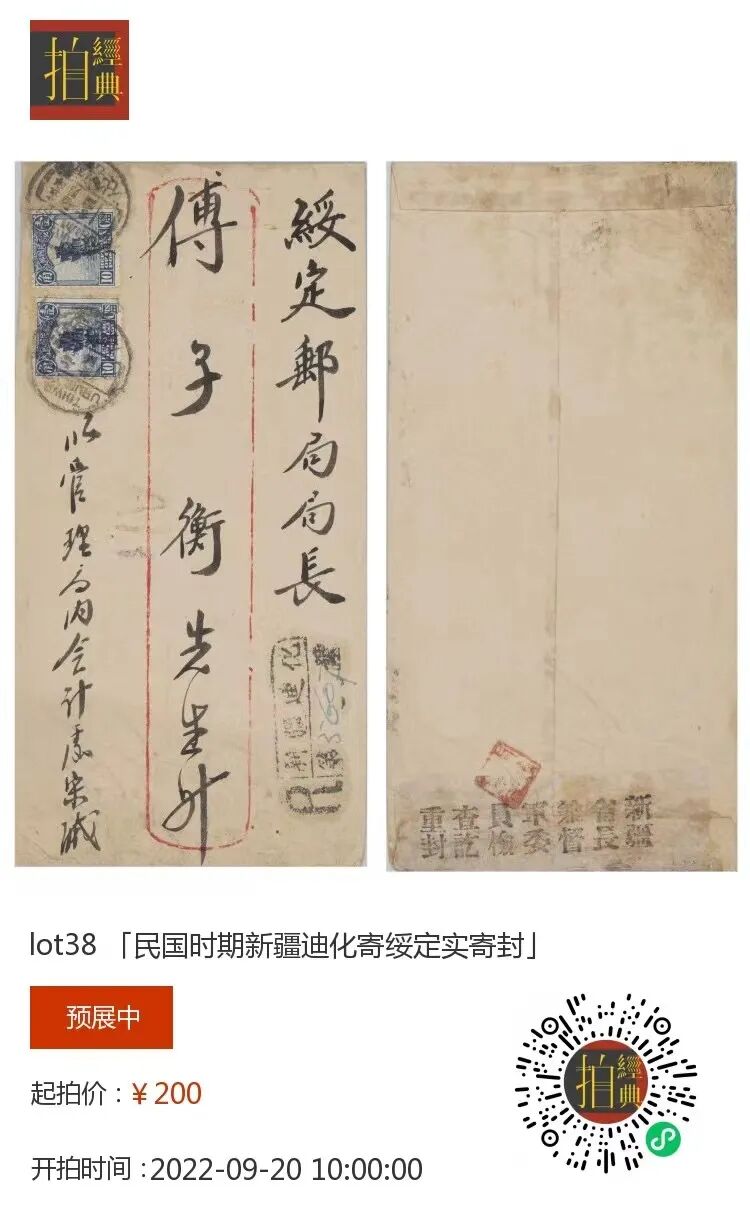 拍
經典
綏定郵局局長
傅子衡先生升
管理局內會計處宋緘
10
10
R
新疆迪化
新疆
省長
兼督
軍委
員檢
查訖
重封
lot38 「民国时期新疆迪化寄绥定实寄封」
预展中
起拍价：¥ 200
开拍时间：2022-09-20 10:00:00
拍
經典